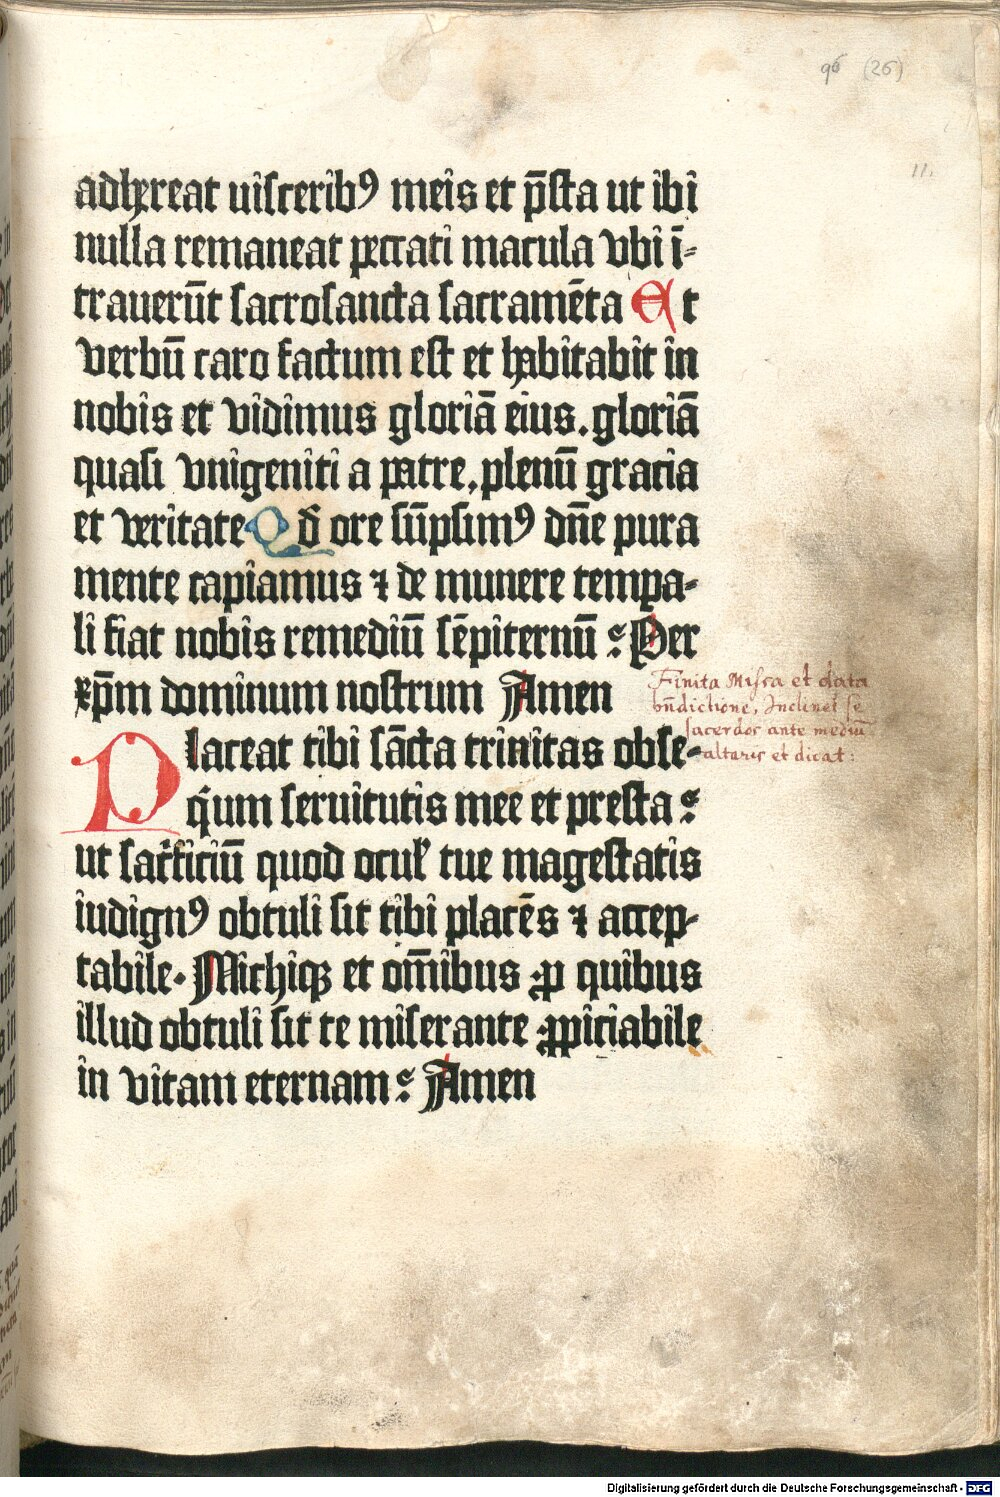 96 (26)
11.
adhereat uisceribꝰ meis et p̄sta ut ibi
nulla remaneat peccati macula vbi ī⸗
trauerūt sacrosancta sacramēta Et
verbū caro factum est et habitabit in
nobis et vidimus gloriā eius. gloriā
quasi vnigeniti a patre, plenū gracia
et veritate Qđ ore sūpsimꝰ dn̄e pura
mente capiamus ⁊ de munere tempa⸗
li fiat nobis remediū sēpiternū : Per
xp̄m dominum nostrum Amen
Finita Missa et data
bn̄dictione, Inclinet se
sacerdos ante mediū
altaris et dicat:
Placeat tibi sācta trinitas obse⸗
q̄um seruitutis mee et presta :
ut sac̄ficiū quod ocul̓ tue magestatis
indignꝰ obtuli sit tibi placēs ⁊ accep⸗
tabile. Michiqꝫ et om̄ibus ꝓ quibus
illud obtuli sit te miserante ꝓpiciabile
in vitam eternam : Amen
Digitalisierung gefördert durch die Deutsche Forschungsgemeinschaft - DFG